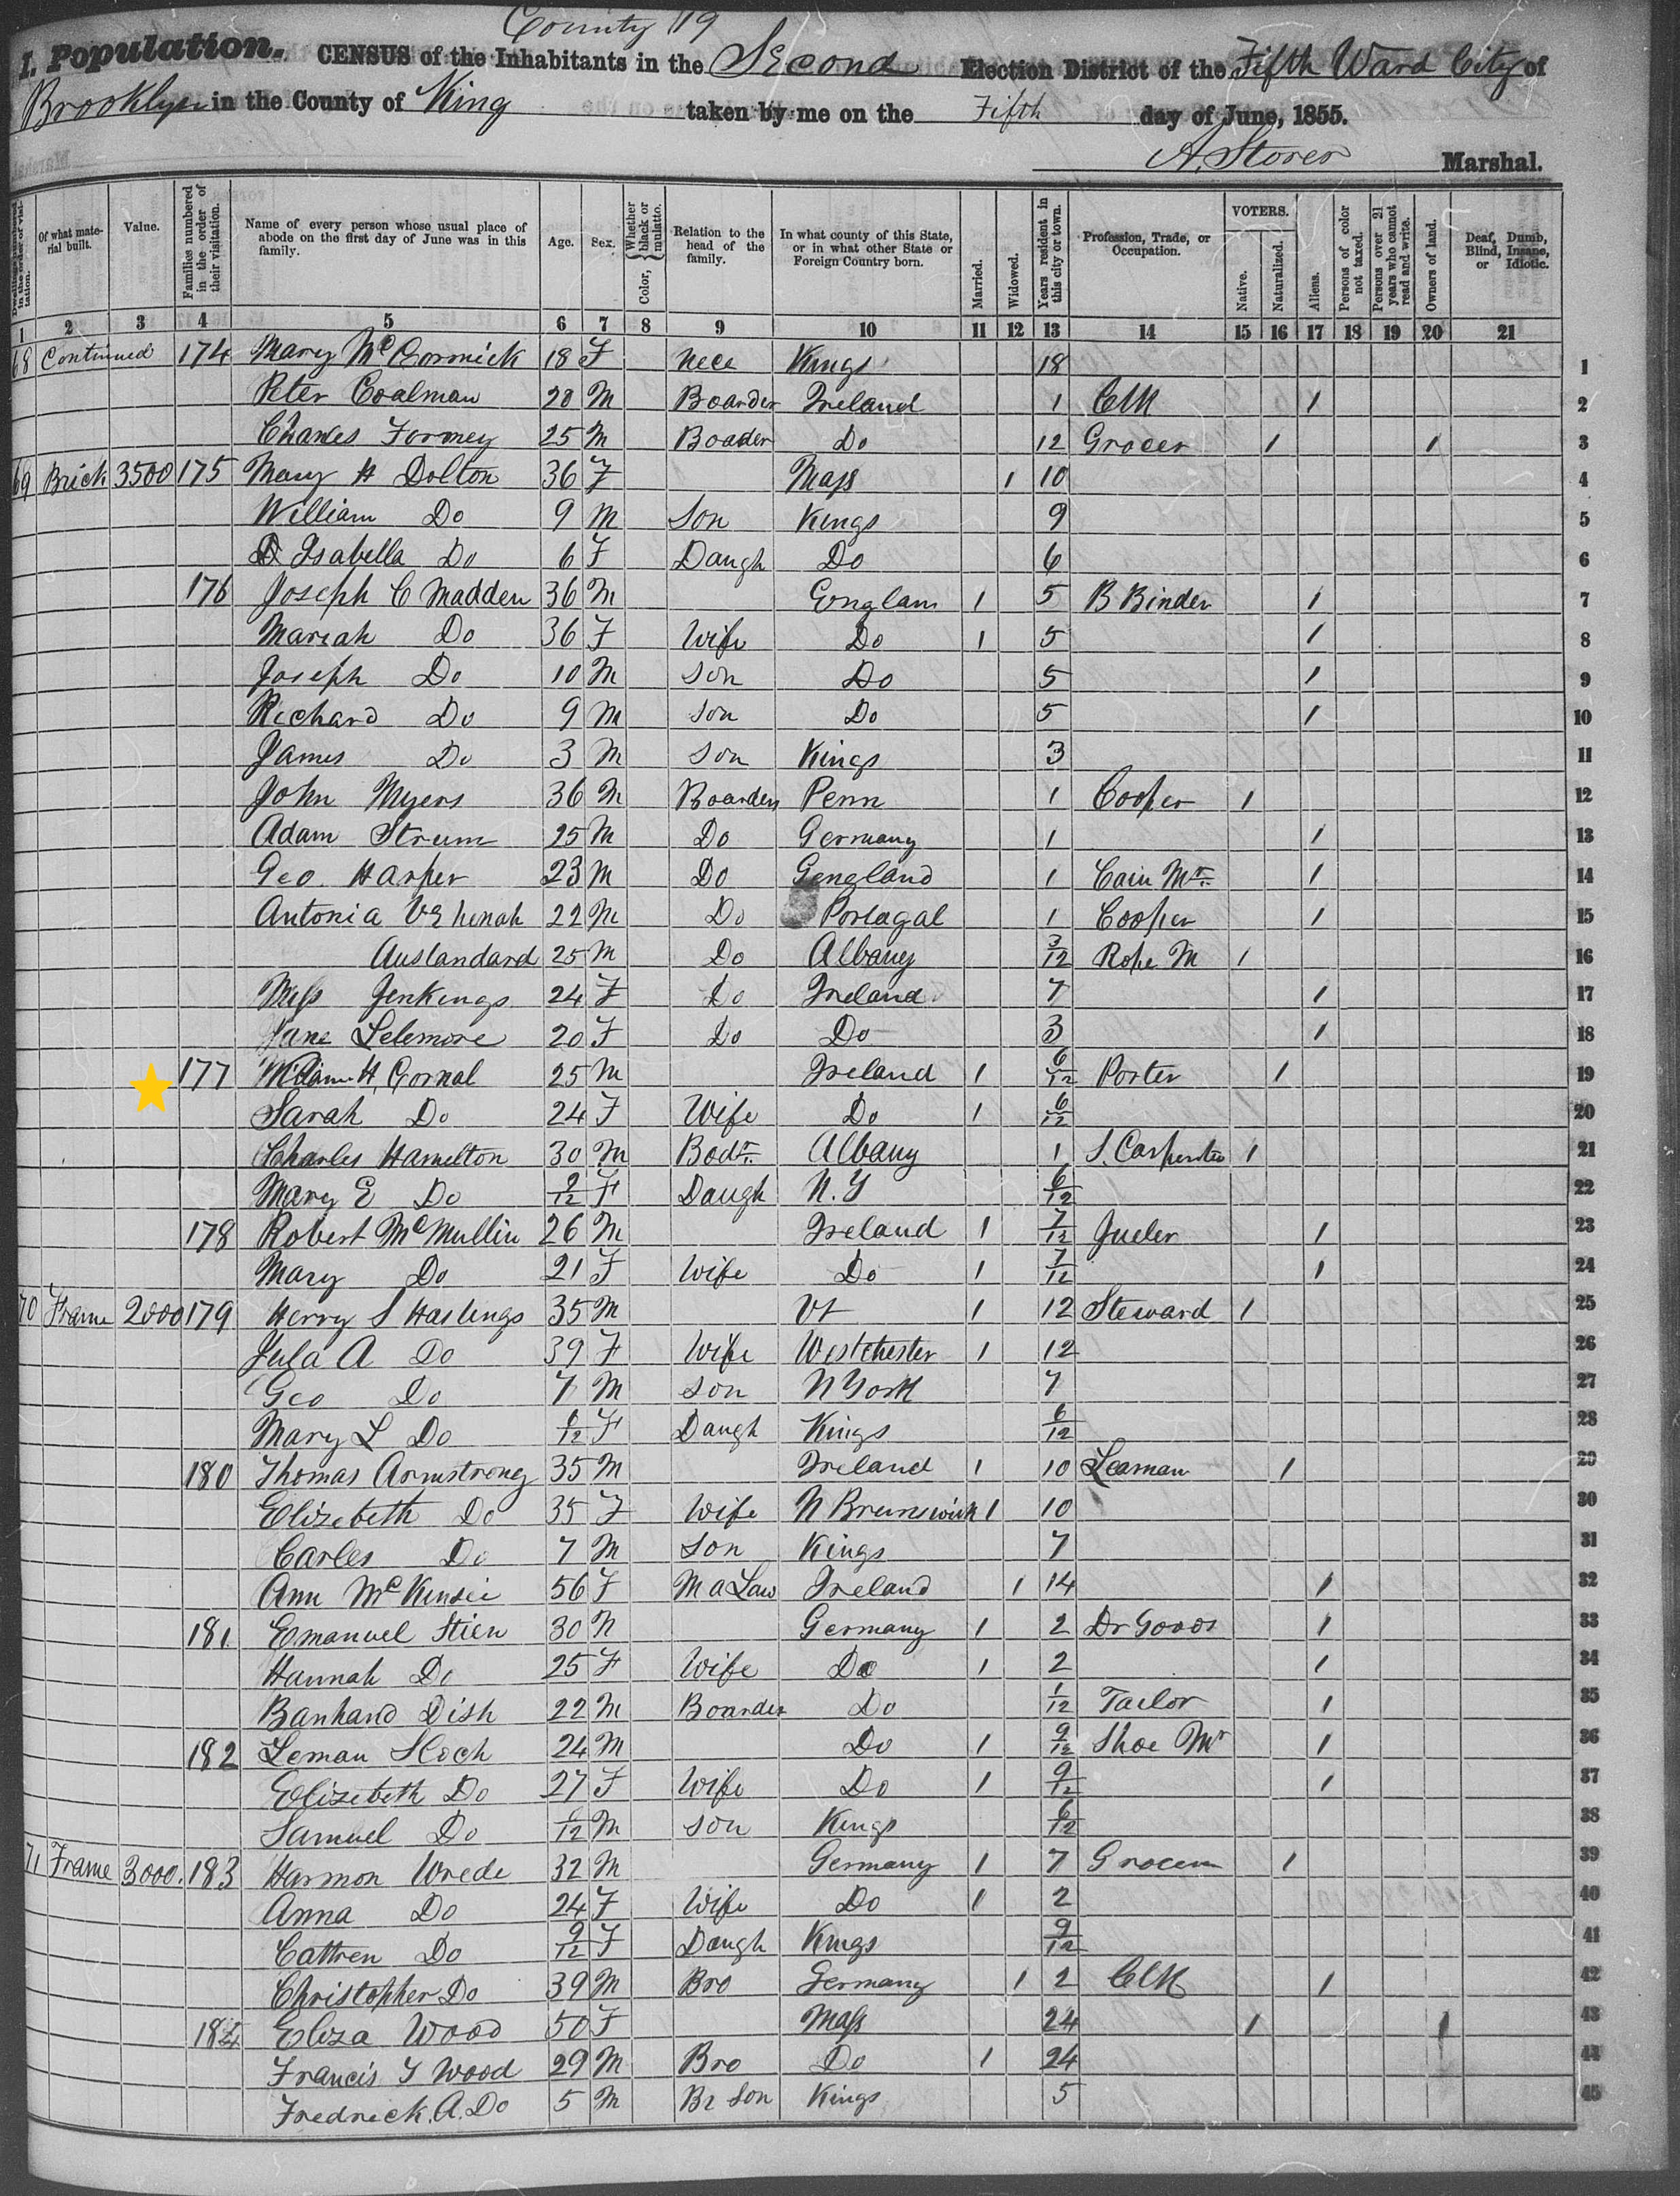 County 119
I. Population. CENSUS of the Inhabitants in the Second Election District of the Fifth Ward City of
Brooklyn in the County of King taken by me on the Fifth day of June, 1855.
A. Storer Marshal.
Dwellings numbered in the order of visitation. Of what material built. Value. Families numbered in the order of their visitation. Name of every person whose usual place of abode on the first day of June was in this family. Age. Sex. Color, Whether black or mulatto. Relation to the head of the family. In what county of this State, or in what other State or Foreign Country born. Married. Widowed. Years resident in this city or town. Profession, Trade, or Occupation. VOTERS. Native. Naturalized. Aliens. Persons of color not taxed. Persons over 21 years who cannot read and write. Owners of land. Deaf, Dumb, Blind, Insane, or Idiotic.
1 2 3 4 5 6 7 8 9 10 11 12 13 14 15 16 17 18 19 20 21
68 Continued 174 Mary McCormick 18 F Nece Kings 18 1
Peter Coalman 28 M Boarder Ireland 1 Clk 1 2
Charles Formey 25 M Boader Do 12 Grocer 1 1 3
69 Brick 3500 175 Mary H Dolton 36 F Mass 1 10 4
William Do 9 M Son Kings 9 5
Isabella Do 6 F Daugh Do 6 6
176 Joseph C Madden 36 M Englam 1 5 B Binder 1 7
Mariah Do 36 F Wife Do 1 5 1 8
Joseph Do 10 M Son Do 5 1 9
Richard Do 9 M Son Do 5 1 10
James Do 3 M Son Kings 3 11
John Myers 36 M Boarders Penn 1 Cooper 1 12
Adam Strum 25 M Do Germany 1 1 13
Geo. Harper 23 M Do Gengland 1 Cain Mr. 1 14
Antonia 22 M Do Portagal 1 Cooper 1 15
Auslandard 25 M Do Albany 3/12 Rope M 1 16
Miss Jenkings 24 F Do Ireland 7 1 17
Jane Lelemore 20 F Do Do 3 1 18
177 William H Gornal 25 M Ireland 1 6/12 Porter 1 19
Sarah Do 24 F Wife Do 1 6/12 20
Charles Hamelton 30 M Bodr. Albany 1 S. Carpenter 1 21
Mary E Do 9/12 F Daugh N.Y 6/12 22
178 Robert McMullin 26 M Ireland 1 7/12 Jueler 1 23
Mary Do 21 F Wife Do 1 7/12 1 24
70 Frame 2000 179 Henry S Hastings 35 M Vt 1 12 Steward 1 25
Jula A Do 39 F Wife Westchester 1 12 26
Geo Do 7 M Son N York 7 27
Mary L Do 6/12 F Daugh Kings 6/12 28
180 Thomas Armstrong 35 M Ireland 1 10 Seaman 1 29
Elizebeth Do 35 F Wife N Brunswick 1 10 30
Carles Do 7 M Son Kings 7 31
Ann McKinsie 56 F M a Law Ireland 1 14 1 32
181 Emanuel Stien 30 M Germany 1 2 Dr Goods 1 33
Hannah Do 25 F Wife Do 1 2 1 34
Banhand Dish 22 M Boarder Do 1/12 Tailor 1 35
182 Leman Hoch 24 M Do 1 9/12 Shoe Mr 1 36
Elizebeth Do 27 F Wife Do 1 9/12 1 37
Samuel Do 6/12 M Son Kings 6/12 38
71 Frame 3000. 183 Harmon Wrede 32 M Germany 1 7 Grocer 1 39
Anna Do 24 F Wife Do 1 2 40
Cattren Do 9/12 F Daugh Kings 9/12 41
Christopher Do 39 M Bro Germany 1 2 Clk 1 42
184 Eliza Wood 50 F Mass 24 1 1 43
Francis T Wood 29 M Bro Do 1 24 44
Fredrick. A. Do 5 M Br Son Kings 5 45